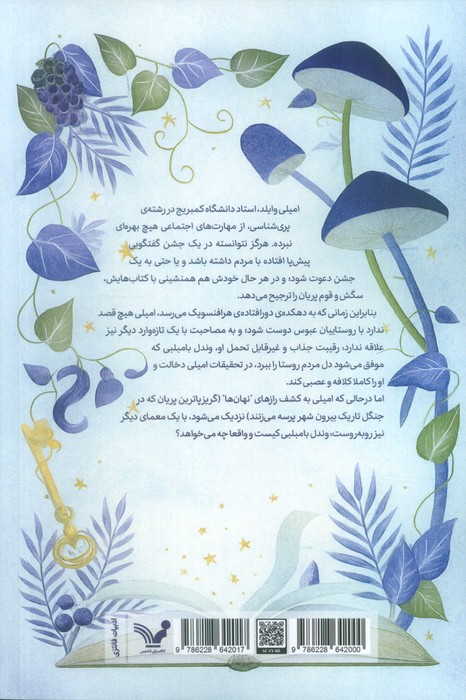 امیلی وایلد، استاد دانشگاه کمبریج در رشته‌ی
پری‌شناسی، از مهارت‌های اجتماعی هیچ بهره‌ای
نبرده. هرگز نتوانسته در یک جشن گفتگویی
پیش‌پا افتاده با مردم داشته باشد و یا حتی به یک
جشن دعوت شود؛ و در هر حال خودش هم همنشینی با کتاب‌هایش،
سگش و قوم پریان را ترجیح می‌دهد.
بنابراین زمانی که به دهکده‌ی دورافتاده‌ی هرافنسویک می‌رسد، امیلی هیچ قصد
ندارد با روستاییان عبوس دوست شود؛ و به مصاحبت با یک تازه‌وارد دیگر نیز
علاقه ندارد: رقیبت جذاب و غیرقابل تحمل او، وندل بامبلبی که
موفق می‌شود دل مردم روستا را ببرد، در تحقیقات امیلی دخالت و
او را کاملا کلافه و عصبی کند.
اما درحالی که امیلی به کشف رازهای "نهان‌ها" (گریزپاترین پریان که در
جنگل تاریک بیرون شهر پرسه می‌زنند) نزدیک می‌شود، با یک معمای دیگر
نیز روبه‌روست: وندل بامبلبی کیست و واقعا چه می‌خواهد؟
ادبیات فانتزی
کتابسرای تندیس
9 786228 642017
SCAN ME
9 786228 642000